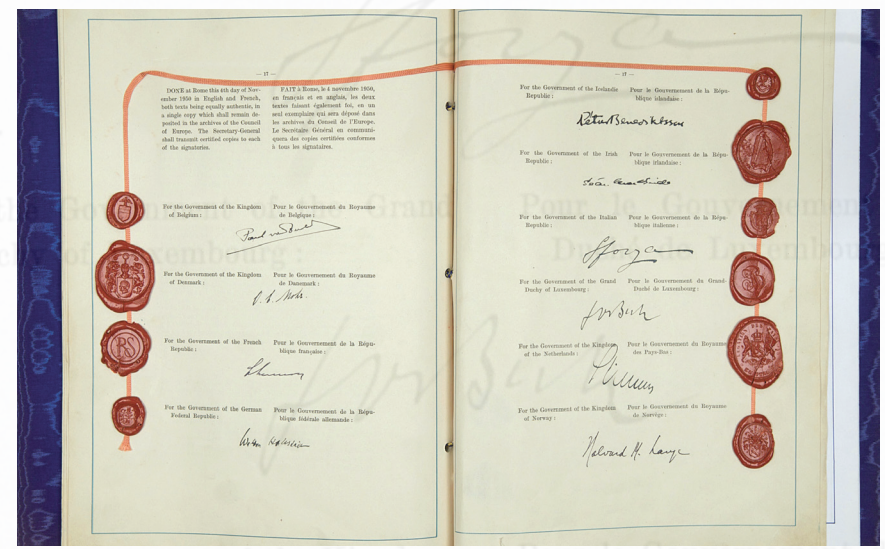 — 17 —
DONE at Rome this 4th day of Nov-
ember 1950 in English and French,
both texts being equally authentic, in
a single copy which shall remain de-
posited in the archives of the Council
of Europe. The Secretary-General
shall transmit certified copies to each
of the signatories.
FAIT à Rome, le 4 novembre 1950,
en français et en anglais, les deux
textes faisant également foi, en un
seul exemplaire qui sera déposé dans
les archives du Conseil de l'Europe.
Le Secrétaire Général en communi-
quera des copies certifiées conformes
à tous les signataires.
For the Government of the Kingdom
of Belgium :
Pour le Gouvernement du Royaume
de Belgique :
For the Government of the Kingdom
of Denmark :
Pour le Gouvernement du Royaume
de Danemark :
O. C. Mohr.
For the Government of the French
Republic :
Pour le Gouvernement de la Répu-
blique française :
RS
For the Government of the German
Federal Republic :
Pour le Gouvernement de la Répu-
blique fédérale allemande :
— 17 —
For the Government of the Icelandic
Republic :
Pour le Gouvernement de la Répu-
blique islandaise :
For the Government of the Irish
Republic :
Pour le Gouvernement de la Répu-
blique irlandaise :
For the Government of the Italian
Republic :
Pour le Gouvernement de la Répu-
blique italienne :
Sforza
For the Government of the Grand
Duchy of Luxembourg :
Pour le Gouvernement du Grand-
Duché de Luxembourg :
Jos Bech
For the Government of the Kingdom
of the Netherlands :
Pour le Gouvernement du Royaume
des Pays-Bas :
For the Government of the Kingdom
of Norway :
Pour le Gouvernement du Royaume
de Norvège :
Halvard M. Lange